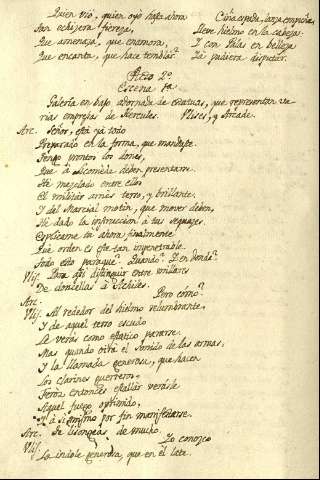 Quien vió, quien oyó hasta ahora
Tan echizera fiereza,
Que amenaza, que enamora,
Que encanta, que hace temblar?
Ciña espada, lanza empuñe,
Lleve hielmo en la cabeza:
I con Palas en belleza
Ya pudiera disputar.
Acto 2º
Escena 1ª
Galeria en bajo adornada de Estatuas, que representan va
rias empresas de Hercules. Ulises, y Arcade.
Arc. Señor, está yá todo
Preparado en la forma, que mandaste.
Tengo prontos los dones,
Que à Licomède deben presentarse.
He mezclado entre ellos
El militar arnès terso, y brillante.
I del Marcial motin, que mover deben,
Hè dado la instruccion à tus sequazes.
Esplicame tu ahora finalmente
Què orden es este tan impenetrable.
Todo esto paraquè? Quando? I en donde?
Ulis. Para assi distinguir entre millares
De doncellas à Achiles.
Arc. Pero còmo?
Ulis. Al rededor del hielmo relumbrante,
I de aquel terso escudo
Le veràs como estatico pararse.
Mas quando oirà el sonido de las armas,
I la llamada generosa, que hacen
Los clarines guerreros,
Feròz entonces estallar veràsle
Aquel fuego oprimido,
I à si mismo por fin manifestarse.
Arc. Te lisongeas de mucho.
Ulis. Yo conozco
La indole generosa, que en el late.